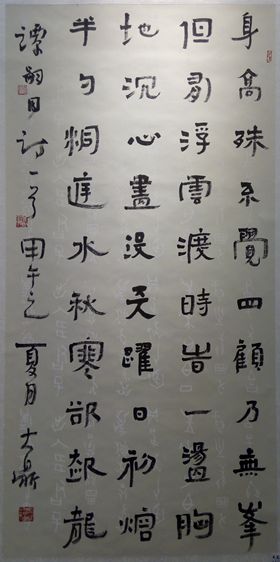 身高殊不覺四顧乃無峯
但有浮雲渡時旹一盪胸
地沉心盡没天躍日初熔
半勺洞庭水秋寒欲起龍
譚嗣同詩一首甲午之夏月大鼎